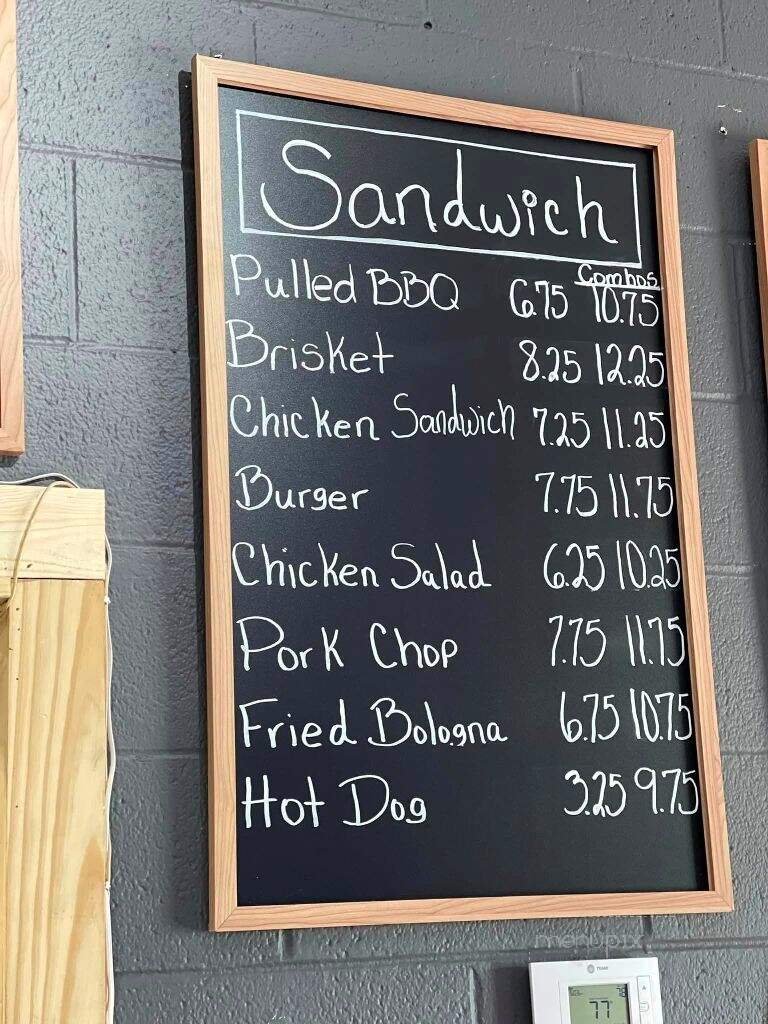 Sandwich
Combos
Pulled BBQ 6.75 10.75
Brisket 8.25 12.25
Chicken Sandwich 7.25 11.25
Burger 7.75 11.75
Chicken Salad 6.25 10.25
Pork Chop 7.75 11.75
Fried Bologna 6.75 10.75
Hot Dog 3.25 9.75
menupix
TRANE
77